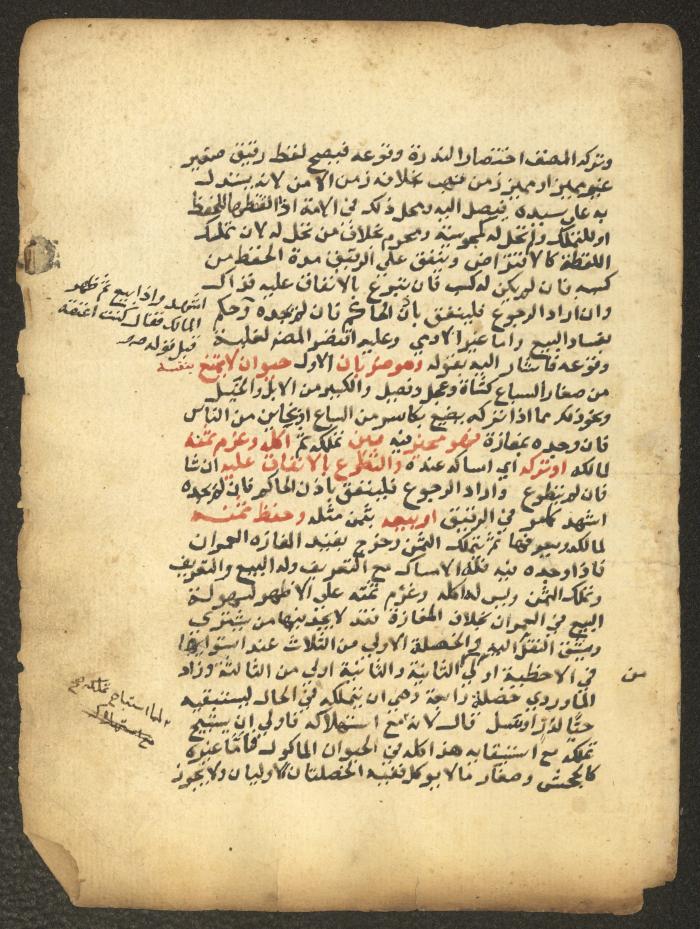 وتركه المصنف اختصارا لندرة وقوعه فيصح لقط رقيق صغير
غير مميز او مميز زمن نهب بخلافه زمن الامن لانه يستدل
به على سيده فيصل اليه ومحل ذلك في الامة اذا التقطها للحفظ
او للتملك ولم تحل له كمجوسية ومحرم بخلاف من تحل له لان تملك
اللقطة كالاقتراض وينفق على الرقيق مدة الحفظ من
كسبه فان لم يكن له كسب فان تبرع بالانفاق عليه فذاك
وان اراد الرجوع فلينفق باذن الحاكم فان لم يجده وحكم
اشهد واذا بيع ثم ظهر
المالك فقال كنت اعتقته
قبل قوله صح
بفساد البيع واما غير الادمي وعليه اقتصر المصنف لغلبة
وقوعه فاشار اليه بقوله وهو ضربان الاول حيوان لا يمتنع بنفسه
من صغار السباع كشاة وعجل وفصيل والكسير من الابل والخيل
ونحو ذلك مما اذا تركه يضيع بكاسر من السباع او بخاين من الناس
فان وجده بمفازة فهو مخير فيه بين تملكه ثم اكله وغرم ثمنه
لمالكه او تركه اي امساكه عنده والتطوع بالانفاق عليه ان شا
فان لم يتطوع واراد الرجوع فلينفق باذن الحاكم فان لم يجده
اشهد كما مر في الرقيق او بيعه بثمن مثله وحفظ ثمنه
لمالكه ويعرفها ثم يتملك الثمن وخرج بقيد المفازه العمران
فاذا وجده فيه فله الامساك مع التعريف وله البيع والتعريف
وتملك الثمن وليس له اكله وغرم ثمنه على الاظهر لسهولة
البيع في العمران بخلاف المفازة فقد لا يجد فيها من يشتري
ويشق النقل اليه والخصلة الاولى من الثلاث عند استوايها
في الاحظية اولى من الثانية والثانية اولى من الثالثة وزاد
الماوردي خصلة رابعة وهي ان يتملكه في الحال ليستبقيه
حيا لدر او نسل قال لانه مع استهلاكه فاولى ان يستبيح
لما استباح تملكه مع
تملكه مع استبقايه هذا كله في الحيوان الماكول فاما غيره
كالجحش وصغار ما لا يوكل ففيه الخصلتان الاوليان ولا يجوز